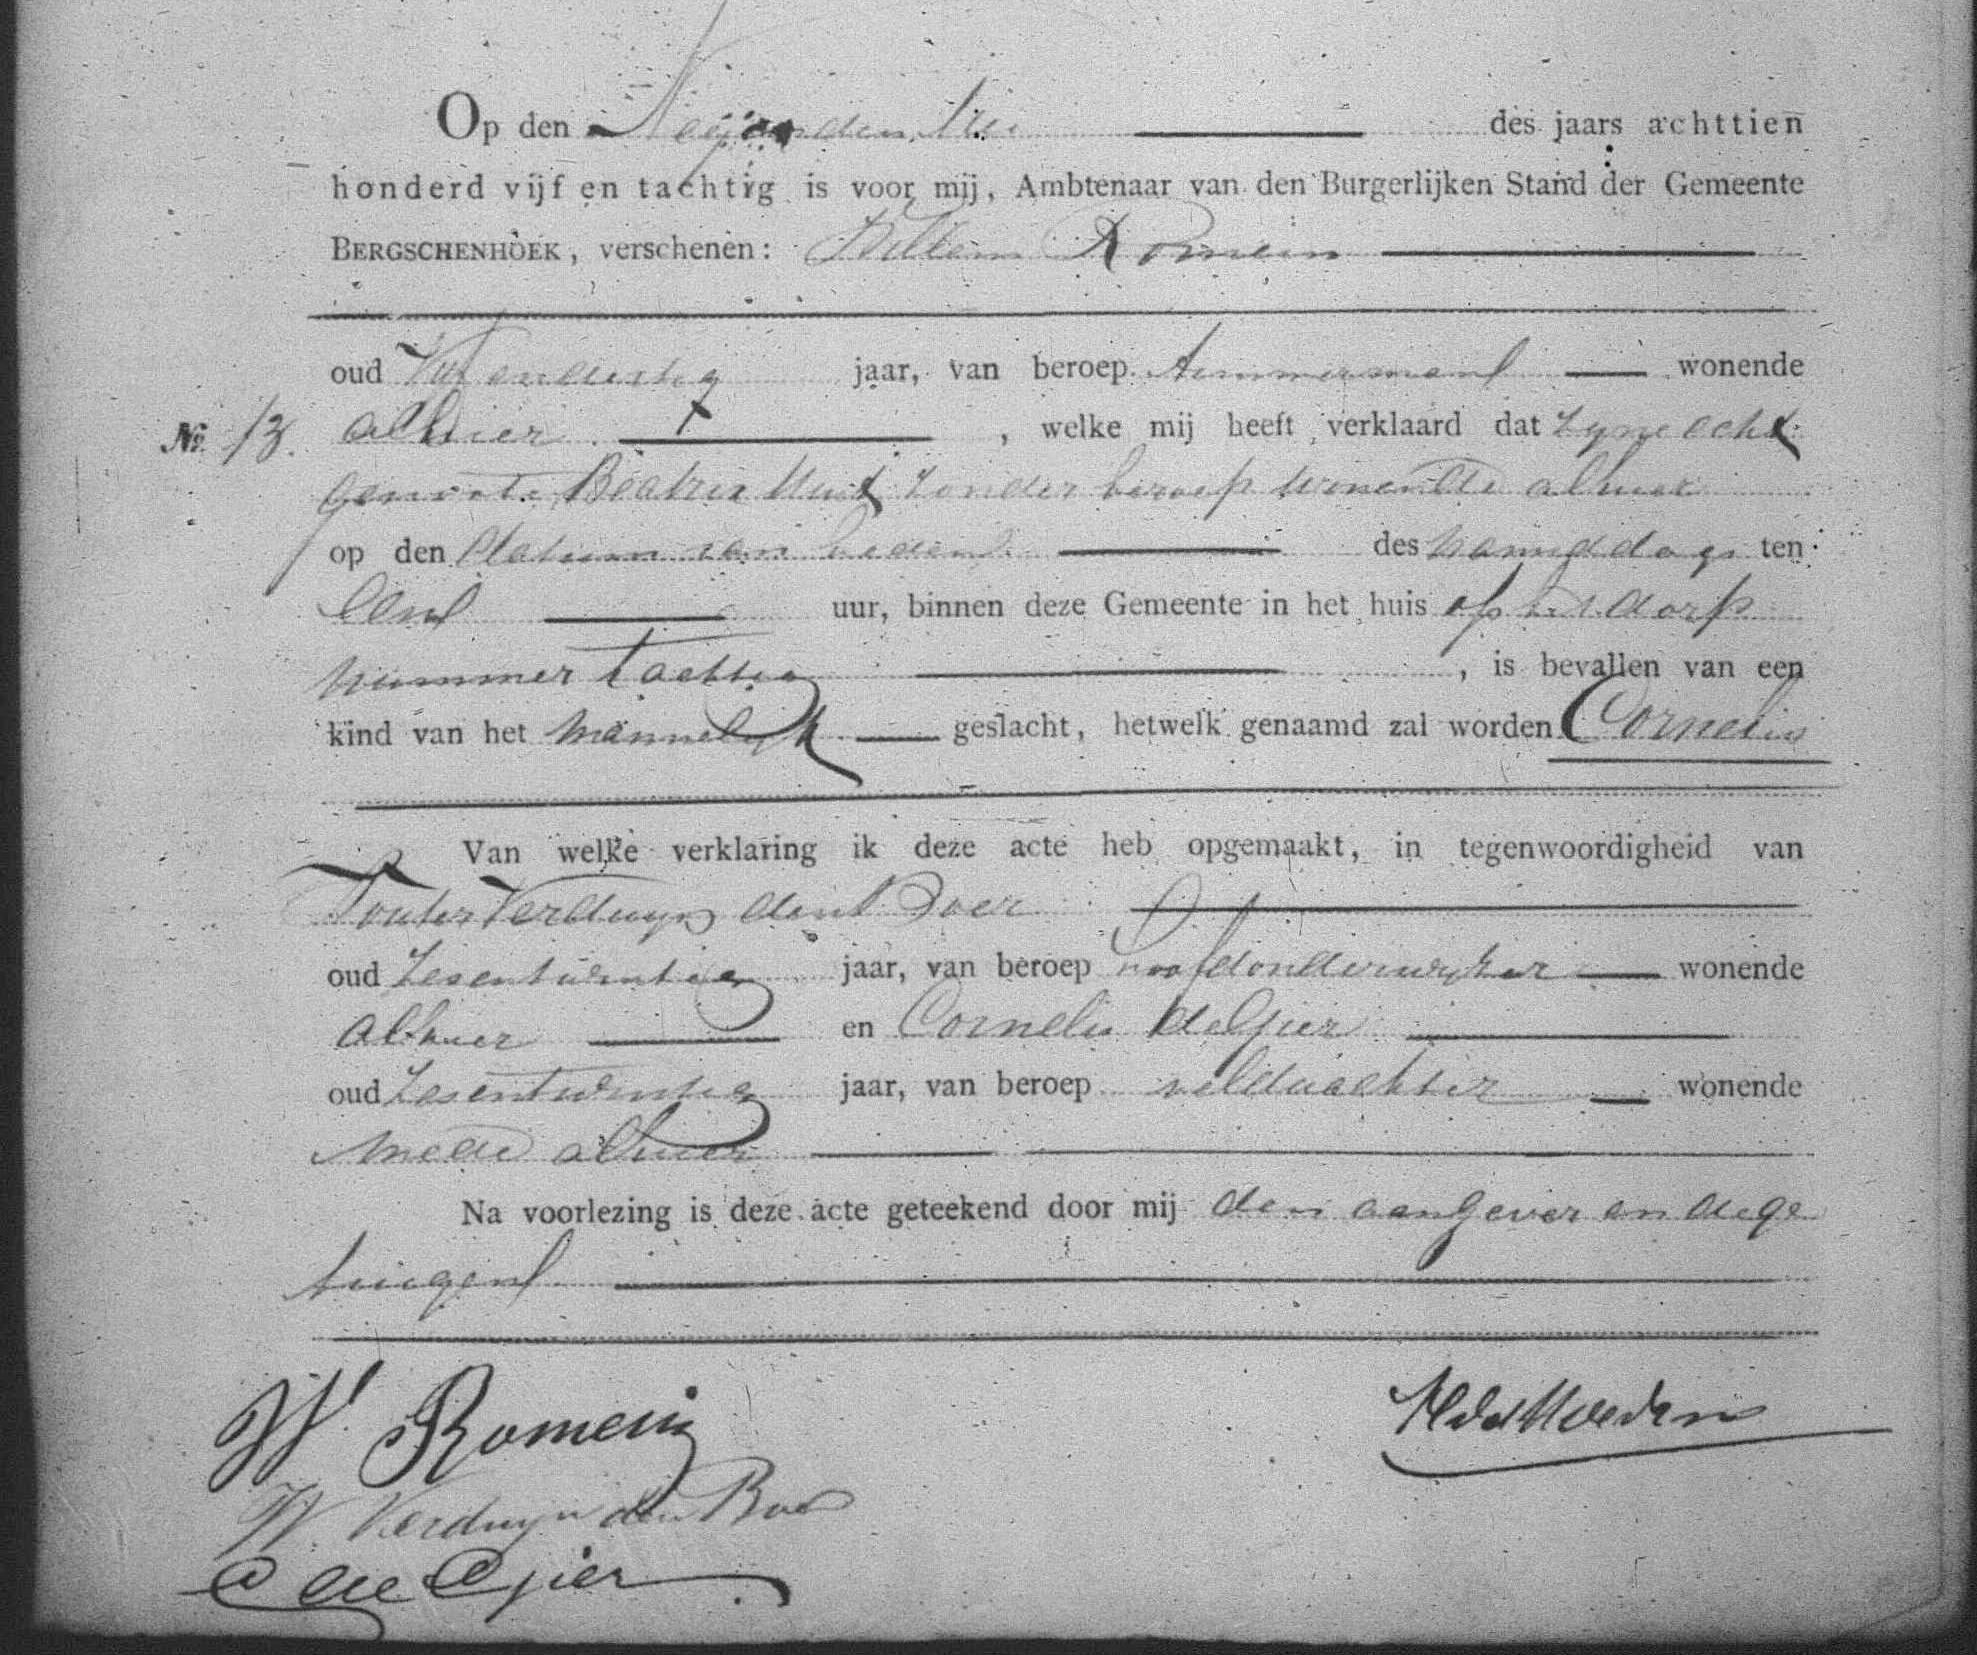 Op den Negenden Mei des jaars achttien
honderd vijf en tachtig is voor mij, Ambtenaar van den Burgerlijken Stand der Gemeente
BERGSCHENHOEK, verschenen: Willem Romein
oud Vijfendertig jaar, van beroep timmerman wonende
No. 13. alhier, welke mij heeft verklaard dat zyne echt
genoote Beatrix zonder beroep wonende alhier
op den datum van heden des namiddags ten
een uur, binnen deze Gemeente in het huis op het dorp
nummer Tachtig, is bevallen van een
kind van het mannelyk geslacht, hetwelk genaamd zal worden Cornelis
Van welke verklaring ik deze acte heb opgemaakt, in tegenwoordigheid van
Wouter Verduyn den Boer
oud Zesentwintig jaar, van beroep hoofdonderwyzer wonende
alhier en Cornelis de Gier
oud Zesentwintig jaar, van beroep veldwachter wonende
mede alhier
Na voorlezing is deze acte geteekend door mij den aangever en de ge
tuigen
W Romein
W. Verduyn den Boer
C de Gier